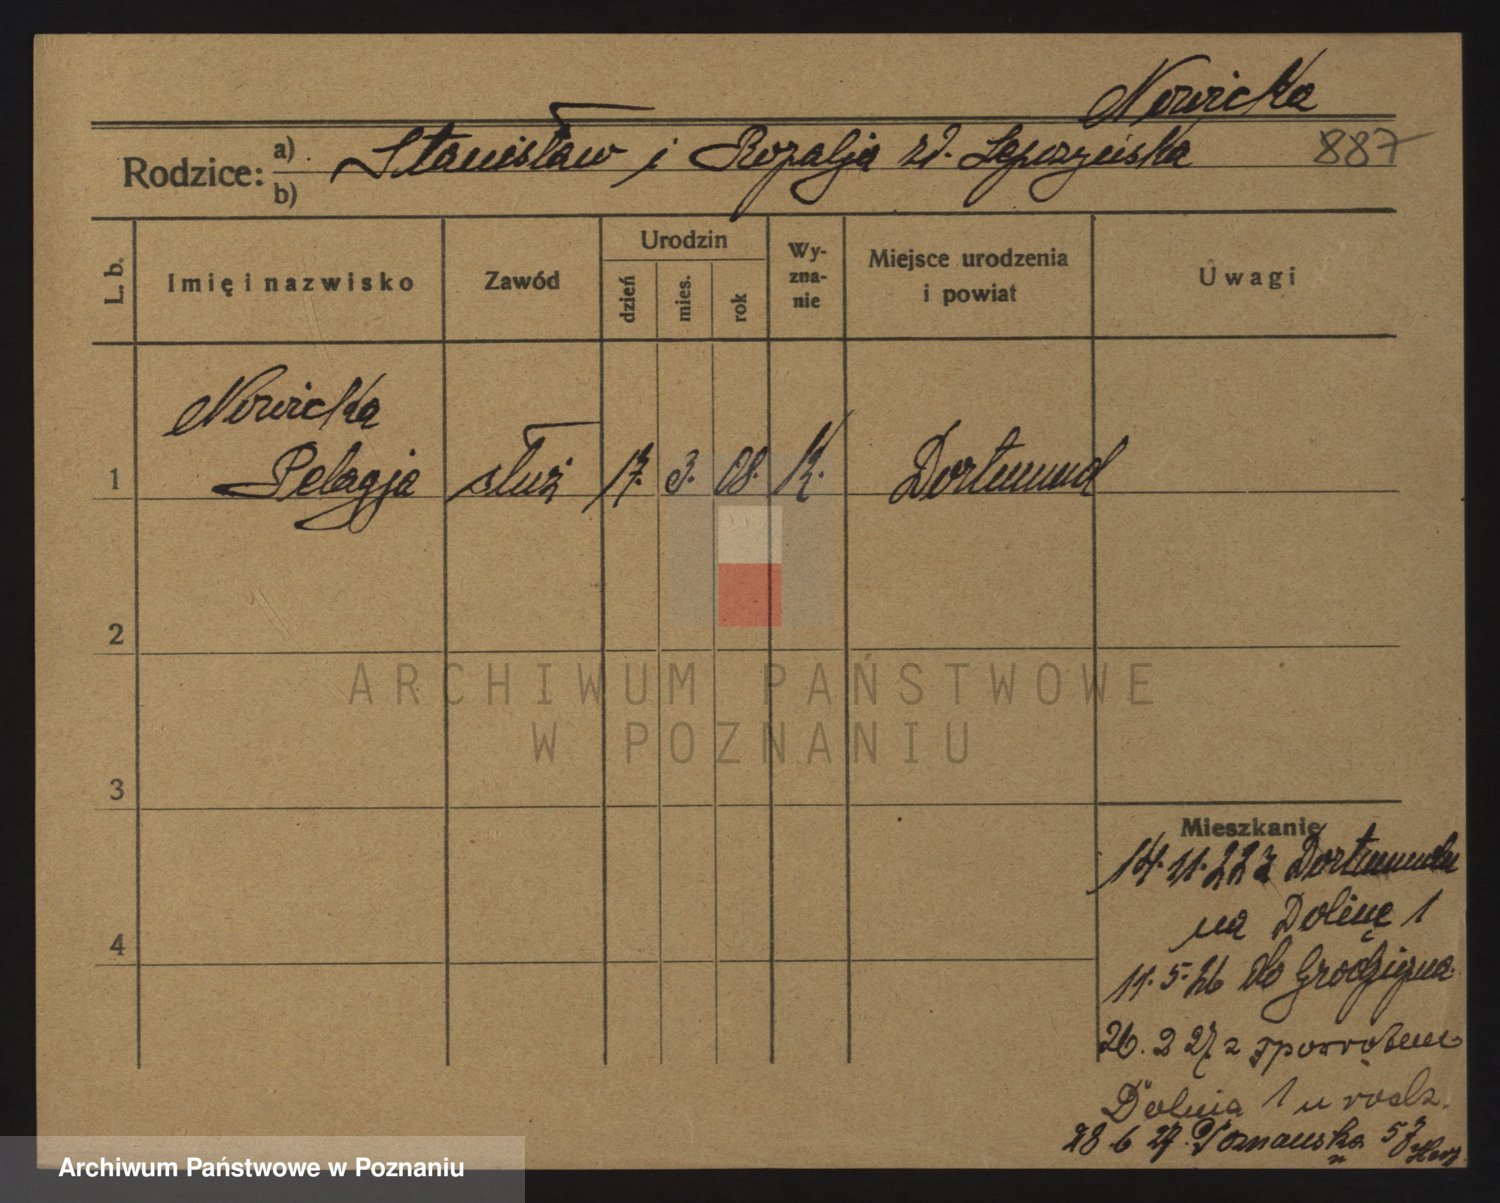 Nowicka
Rodzice: a) Stanisław i Rozalja zd. Lepczyńska 887
b)
L. b. Imię i nazwisko Zawód Urodzin dzień mies. rok Wy-zna-nie Miejsce urodzenia i powiat Uwagi
Nowicka
1 Pelagja służ 17. 3. 08. K. Dortmund
2
ARCHIWUM PAŃSTWOWE
W POZNANIU
3
Mieszkanie
14.11.22 z Dortmundu
na Dolinę 1
4
11.5.26 do Grodziszcza
26. 2 27 z powrotem
Dolina 1 u rodz.
28 6 27. Poznańska 57
Archiwum Państwowe w Poznaniu